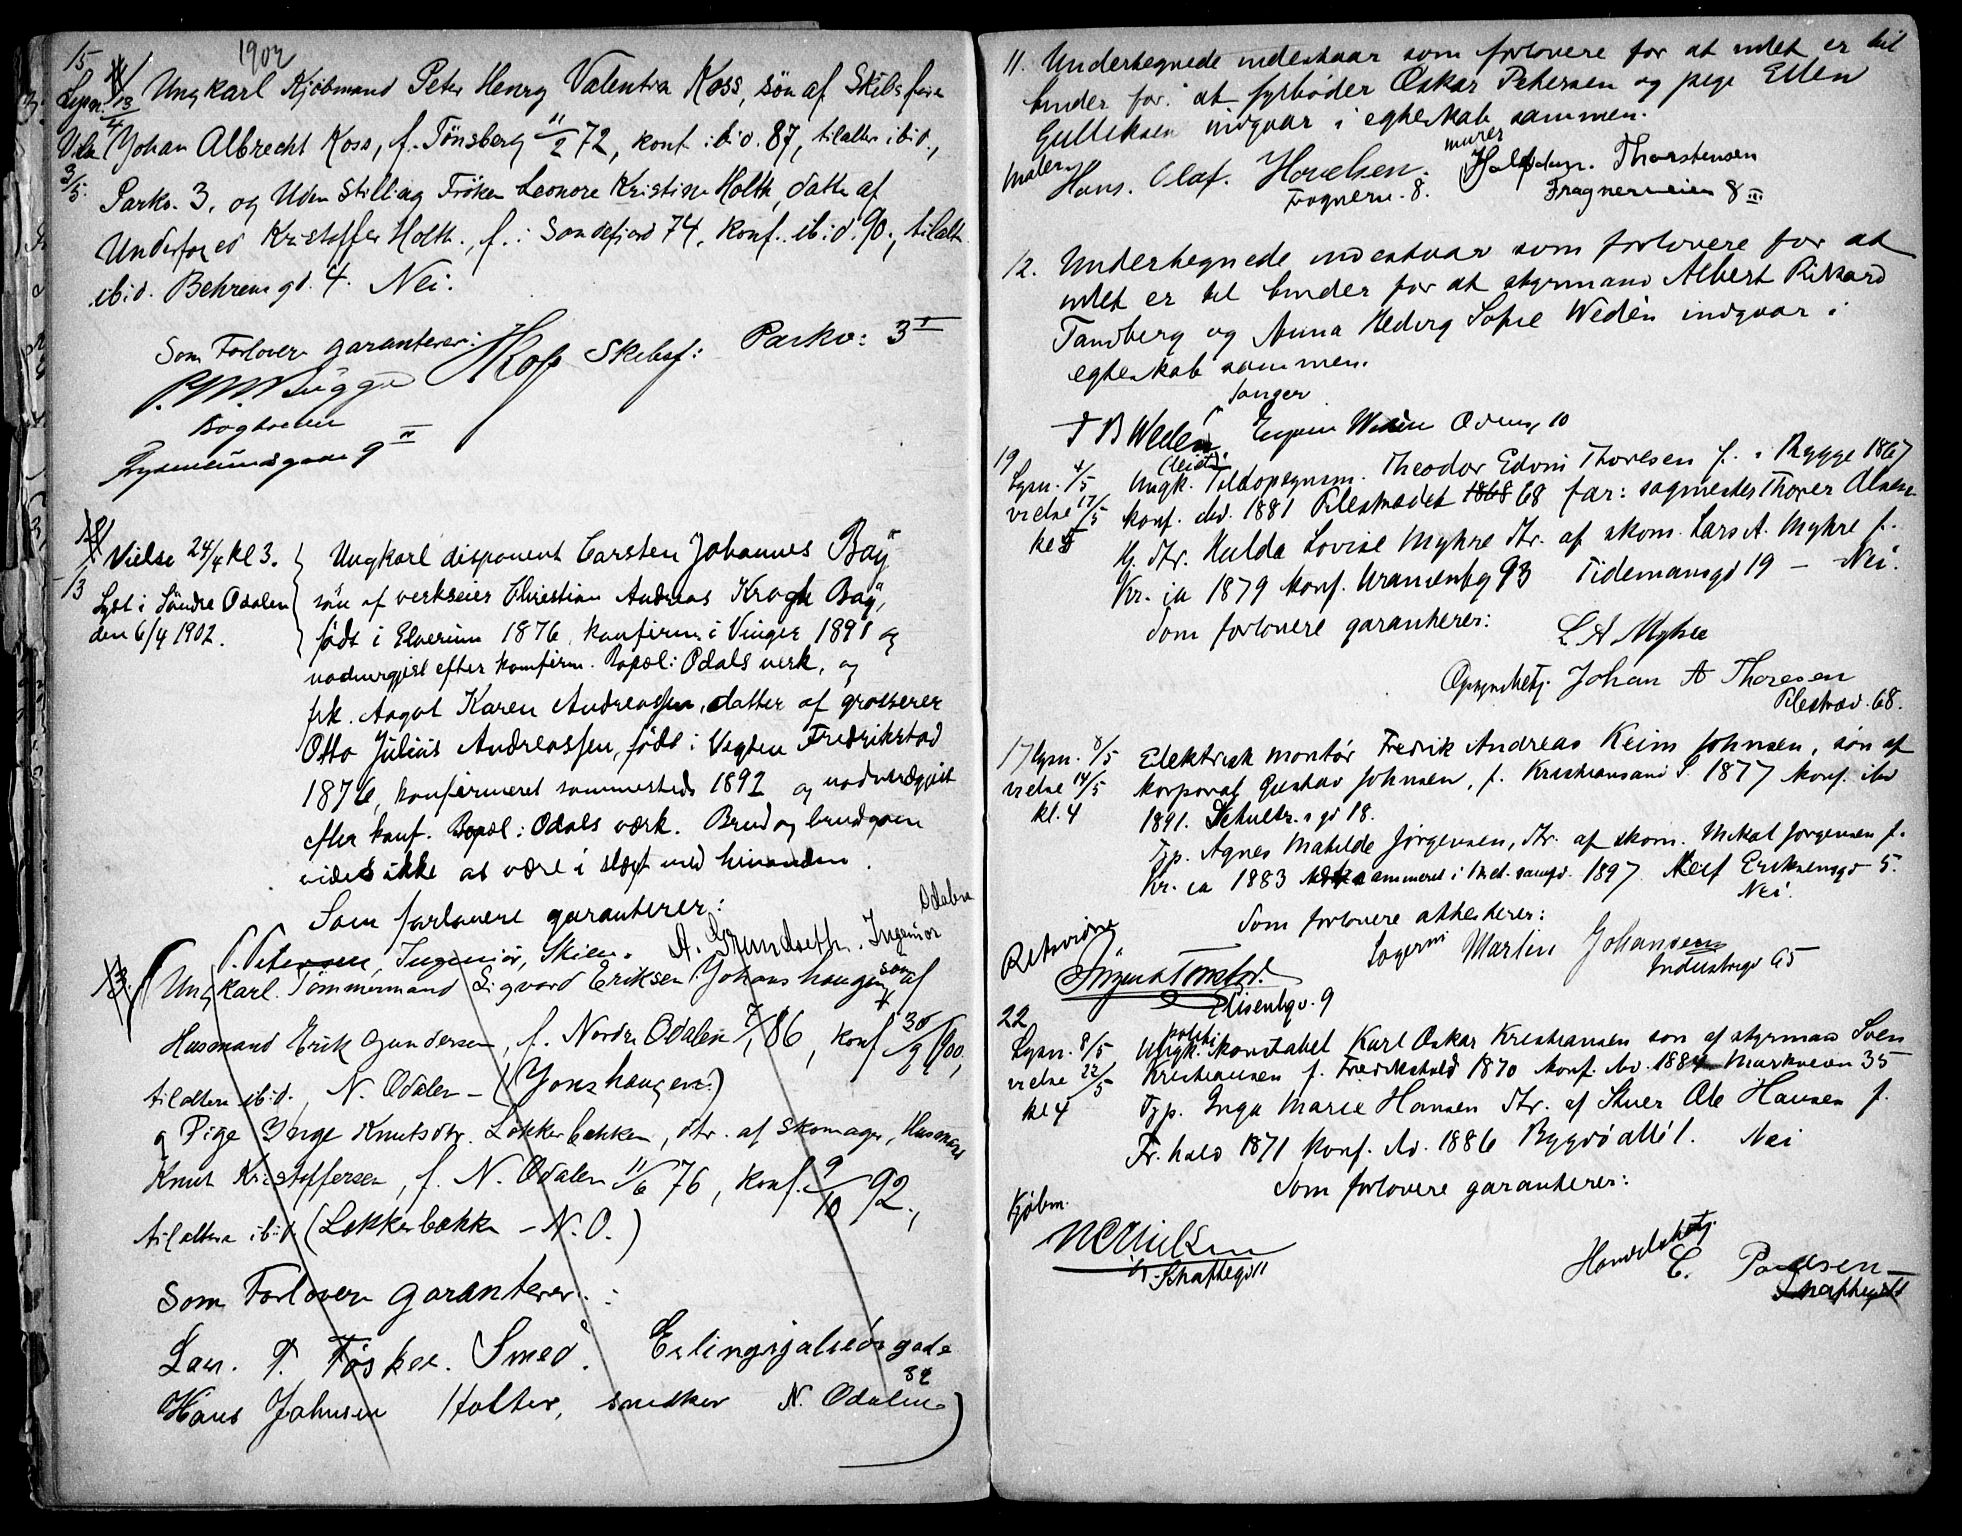 1902
15
Lysn. 13/4 Ungkarl Kjöbmand Peter Henry Valentin Koss, sön af Skibsförer
Vielse Johan Albrecht Koss, f. Tönsberg 11/2 72, konf. ibid. 87, tilalters ibid.,
3/5. Parkv. 3, og Uden Stilling Fröken Leonore Kristine Holth, datter af
Underfoged Kristoffer Holth, f. i Sandefjord 74, konf. ibid. 90, tilalt.
ibid. Behrensgd. 4. Nei.
Som Forlovere garanterer:
Koss Skibsf: Parkv: 3 I
Bugge
Boghandler
9 II
Vielse 24/4 kl 3. Ungkarl disponent Carsten Johannes Bay
13 sön af verkseier Christian Andreas Krogh Bay,
Lyst i Söndre Odalen
den 6/4 1902. född i Elverum 1876, konfirm. i Vinger 1891 og
nadvergjest efter konfirm. Bopæl: Odals verk, og
frk. Aagot Karen Andreassen, datter af grosserer
Otto Julius Andreassen, född i Vestre Fredrikstad
1876, konfirmeret sammesteds 1892 og nadverdgjest
efter konf. Bopæl: Odals værk. Brud og brudgom
vides ikke at være i slægt med hinanden.
Som forlovere garanterer:
P. Petersen, Ingeniör, Skien. A. Grundseth. Ingeniör Odalen
13. Ungkarl Tömmermand Sigvard Eriksen Johanshaugen, sön af
Husmand Erik Gundersen, f. Nordre Odalen 86, konf. 30/9 1900,
tilalters ibid., N. Odalen - (Jonshaugen.)
og Pige Inge Knutsdtr. Løkkerbakken, dtr. af Skomager, Husmand
Knut Kristoffersen, f. N. Odalen 11/6 76, konf. 9/10 92,
tilalters ibid. (Løkkerbakke - N.O.)
Som Forlovere garanterer:
Smed. Erling Skjalgsöns gade
32
Hans Johnsen Holter, snedker N. Odalen
11. Undertegnede indestaar som forlovere for at intet er til
hinder for at fyrbøder Oskar Petersen og pige Ellen
Gulliksen indgaar i egteskab sammen.
Maler Hans. Olaf. Hovelsen. murer Halfdan. Thorstensen
Frognerv. 8. Fragnerveien 8 III
12. Undertegnede indestaar som forlovere for at
intet er til hinder for at styrmand Albert Rikard
Tandberg og Anna Hedvig Sofie Wedén indgaar i
egteskab sammen.
Sanger
F B Wedén Eugen Wedén Odinsg 10
19 (Leids)
Lysn. 4/5 Ungk. Toldopsynsm. Theodor Edvin Thoresen f. i Rygge 1867
vielse 17/5 konf. ibd. 1881 Pilestrædet 68 far: sagmester Thorer Olsen
kl 5 Pj. dtr. Hulda Lovise Myhre dtr. af skom. Lars A. Myhre f.
Kr. ia 1879 konf. Uranienbg 93 Tidemansgd 19 - Nei.
Som forlovere garanterer: L A Myhre
Opsynsbetj. Johan A Thoresen
Pilestræd. 68.
17 Lysn. 8/5 Elektrisk montör Fredrik Andreas Keim Johnsen, sön af
vielse 14/5 Korporal Gustav Johnsen, f. Kristiansand S. 1877 konf. ibd
kl. 4 1891. Schultz.s gd 18.
Tjp. Agnes Matilde Jörgensen, dtr. af skom. Mikal Jörgensen f.
Kr. ia 1883 i Met. samfd. 1897. Leif Eriksensgd 5.
Nei.
Som forlovere attesterer:
Retsvidne Lagerm Martin Johansen
Industrigd 65
Elisenbgv. 9
22
Lysn. 8/5 Ungk. politikonstabel Karl Oskar Kristiansen sön af styrmand Sven
vielse 22/5 Kristiansen f. Fredrikshald 1870 konf. ibd. 1884 Markveien 35
kl 4 Tjp. Inga Marie Hansen dtr. af Stuer Ole Hansen f.
Fr.hald 1871 konf. ibd. 1886 Bygdö allé 1. Nei
Som forlovere garanterer:
Kjöbm.
N C Nielsen Handelsbetj. C. Paulsen
Schaftegd 11